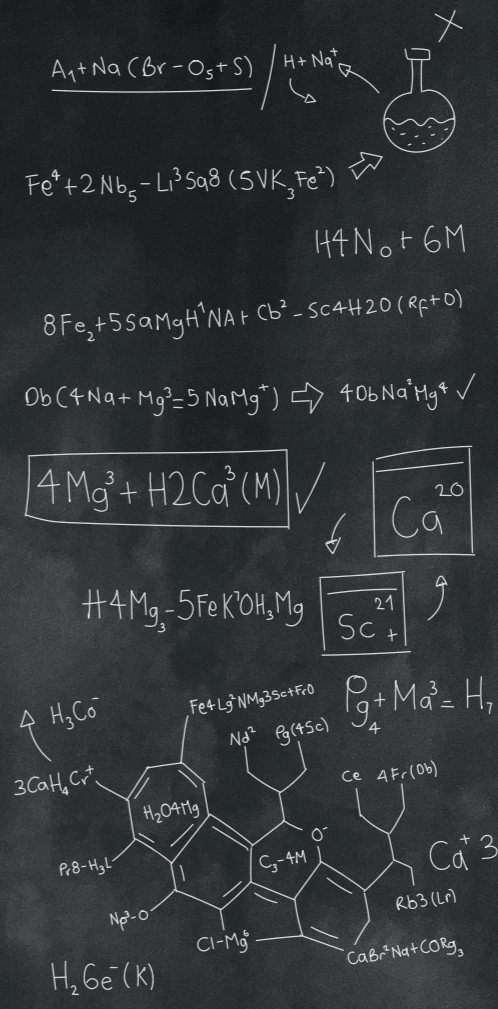 A₁+Na(Br-O₅+S)
H+Na⁺
Fe⁴+2Nb₅-Li³Sa8(5VK₃Fe²)
H4N₀+6M
8Fe₂+5SaMgH¹NA+Cb²-Sc4H2O(Rf+O)
Ob(4Na+Mg³=5NaMg⁺)⇨4ObNa²Mg⁴✓
4Mg³+H2Ca³(M)✓
Ca²⁰
H4Mg₃-5FeK⁷OH₃Mg
Sc²¹₊
Pg₄+Ma³=H₇
H₃Co⁻
Fe4Lg²NMg3Sc+FrO
Nd²
Pg(4Sc)
3CaH₄Cr⁺
H₂O4Mg
Ce
4Fr(Ob)
O⁻
Pr8-H₃L
C₃-4M
Ca⁺3
Rb3(Ln)
Np³-O
Cl-Mg⁶
CaBr²Na+CORg₃
H₂6e⁻(K)